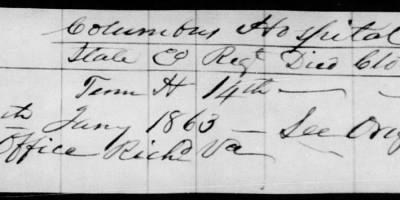 Columbus Hospital
State Co Regt Died Clo
Tenn H 14th — —
th Jany 1863 — See Orig
Office Richd Va